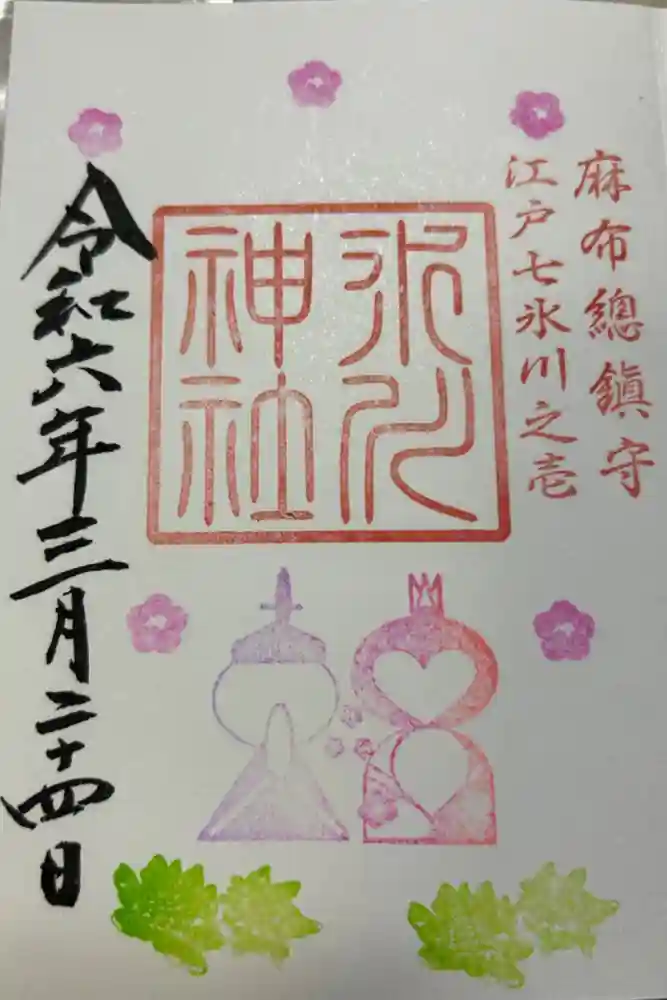 麻布總鎮守
江戸七氷川之壱
氷川
神社
令和六年三月二十四日